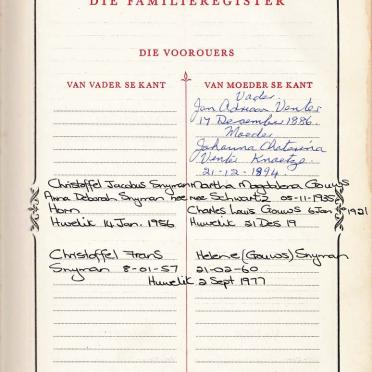 DIE FAMILIEREGISTER
DIE VOOROUERS
VAN VADER SE KANT
VAN MOEDER SE KANT
Vader.
Jan Adriaan Venter
17 Desember 1886.
Moeder
Johanna Catarina
Venter Knoetze.
21-12-1894
Christoffel Jacobus Snyman
Anna Deborah Snyman nee
Horn
Huwelik 14 Jan. 1956
Martha Magdalena Gouws
nee Schwartz 05-11-1935
Charles Louis Gouws 6 Jan 1921
Huwelik 21 Des 19
Christoffel Frans
Snyman 8-01-57
Helene (Gouws) Snyman
21-02-60
Huwelik 2 Sept 1977